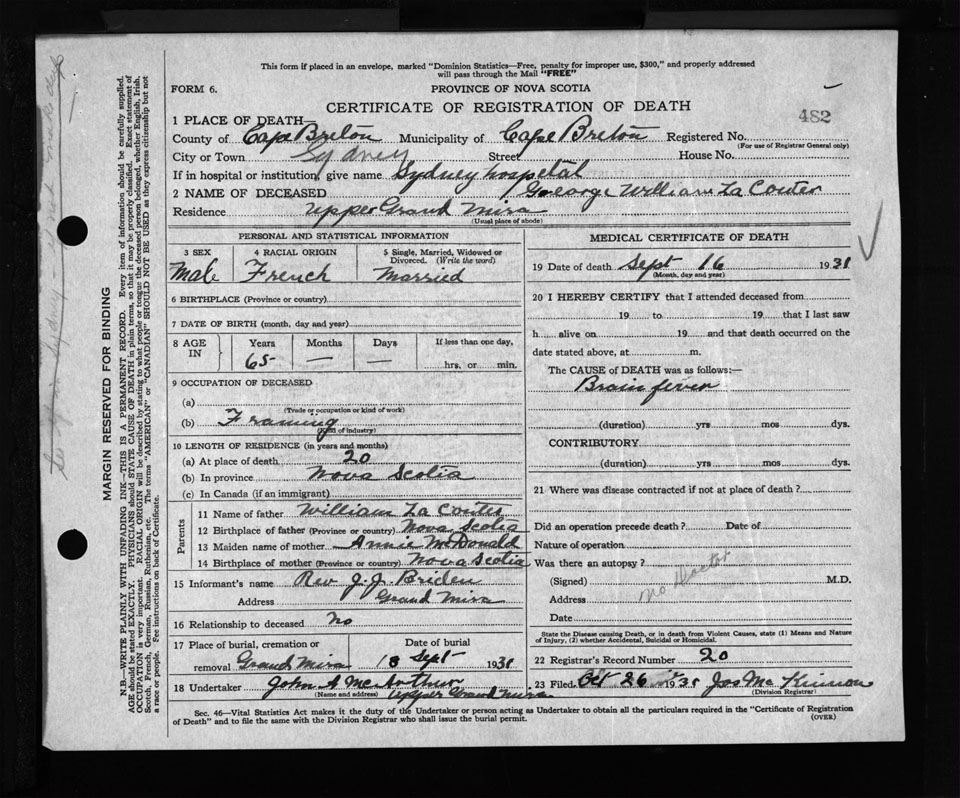 This form if placed in an envelope, marked "Dominion Statistics—Free, penalty for improper use, $300," and properly addressed
will pass through the Mail "FREE"
FORM 6. PROVINCE OF NOVA SCOTIA
CERTIFICATE OF REGISTRATION OF DEATH 482
1 PLACE OF DEATH—
County of Cape Breton Municipality of Cape Breton Registered No.
(For use of Registrar General only)
City or Town Sydney Street House No.
If in hospital or institution, give name Sydney hospetal
2 NAME OF DECEASED George William La Couter
Residence Upper Grand Mira
(Usual place of abode)
PERSONAL AND STATISTICAL INFORMATION
3 SEX 4 RACIAL ORIGIN 5 Single, Married, Widowed or
Divorced. (Write the word)
Male French Married
6 BIRTHPLACE (Province or country)
7 DATE OF BIRTH (month, day and year)
8 AGE IN Years Months Days If less than one day,
65 — — hrs. or min.
9 OCCUPATION OF DECEASED
(a)
(Trade or occupation or kind of work)
(b) Framing
(Kind of industry)
10 LENGTH OF RESIDENCE (in years and months)
(a) At place of death 20
(b) In province Nova Scotia
(c) In Canada (if an immigrant)
Parents
11 Name of father William La Couter
12 Birthplace of father (Province or country) Nova Scotia
13 Maiden name of mother Annie McDonald
14 Birthplace of mother (Province or country) Nova Scotia
15 Informant's name Rev J. J. Briden
Address Grand Mira
16 Relationship to deceased No
17 Place of burial, cremation or Date of burial
removal Grand Mira 18 Sept 1931
18 Undertaker John A McArthur
(Name and address) Upper Grand Mira
MEDICAL CERTIFICATE OF DEATH
19 Date of death Sept 16 1931
(Month, day and year)
20 I HEREBY CERTIFY that I attended deceased from
19 to 19 that I last saw
h alive on 19 and that death occurred on the
date stated above, at m.
The CAUSE of DEATH was as follows:—
Brain fever
(duration) yrs mos dys.
CONTRIBUTORY
(duration) yrs mos dys.
21 Where was disease contracted if not at place of death?
Did an operation precede death? Date of
Nature of operation
Was there an autopsy?
(Signed) no Doctor M.D.
Address
Date
State the Disease causing Death, or in death from Violent Causes, state (1) Means and Nature
of Injury, (2) whether Accidental, Suicidal or Homicidal.
22 Registrar's Record Number 20
23 Filed Oct 26 1931 Jos Mc Kinnon
(Division Registrar)
Sec. 46—Vital Statistics Act makes it the duty of the Undertaker or person acting as Undertaker to obtain all the particulars required in the "Certificate of Registration
of Death" and to file the same with the Division Registrar who shall issue the burial permit.
(OVER)
MARGIN RESERVED FOR BINDING
N.B.—WRITE PLAINLY WITH UNFADING INK—THIS IS A PERMANENT RECORD. Every item of information should be carefully supplied.
AGE should be stated EXACTLY. PHYSICIANS should STATE CAUSE OF DEATH in plain terms, so that it may be properly classified. Exact statement of
OCCUPATION is very important. RACIAL ORIGIN will be described by stating to what people or tongue the deceased person belonged, whether English, Irish,
Scotch, French, German, Russian, Ruthenian, etc. The terms "AMERICAN" or "CANADIAN" SHOULD NOT BE USED as they express citizenship but not
a race or people. See instructions on back of Certificate.